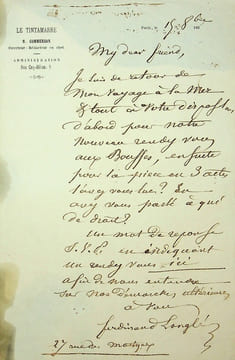 LE TINTAMARRE
Paris, le 15 8bre 186
C. COMMERSON
Directeur-Rédacteur en chef
ADMINISTRATION
My dear friend,
Je suis de retour de
mon voyage à la Mer
& tout à votre disposition,
d'abord pour notre
nouveau rendez vous
aux Bouffes, ensuite
pour la pièce en 3 actes
l'avez vous lue? En
avez vous parlé à qui
de droit?
Un mot de réponse
S.V.P. en indiquant
un rendez vous ici
afin de nous entendre
sur nos démarches ultérieures
à vous
ferdinand Langlé
27 rue des martyrs